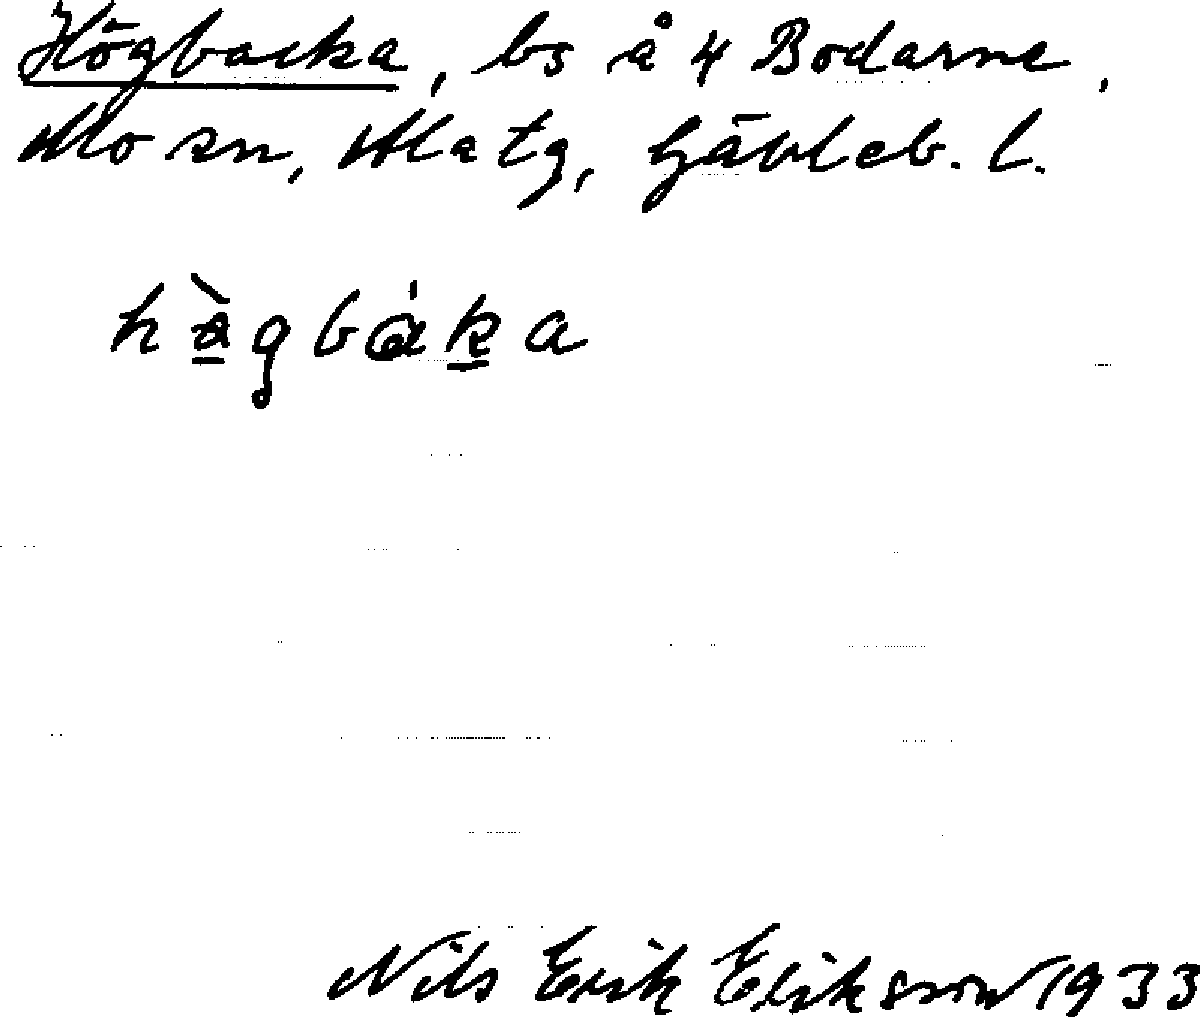 Högbacka, bs å 4 Bodarne,
Mo sn, Ala tg, Gävleb. l.
Nils Erik Eriksson 1933